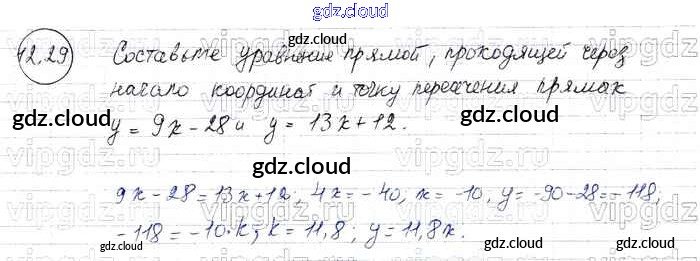 gdz.cloud
12.29 Составьте уравнение прямой, проходящей через
начало координат и точку пересечения прямых
gdz.cloud gdz.cloud
y = 9x - 28 и y = 13x + 12.
gdz.cloud
9x - 28 = 13x + 12; 4x = - 40, x = -10, y = -90 - 28 = -118;
-118 = -10·k; k = 11,8; y = 11,8x.
gdz.cloud gdz.cloud